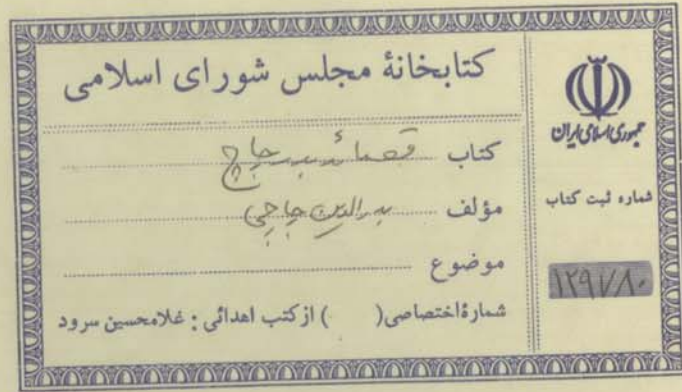 کتابخانهٔ مجلس شورای اسلامی
کتاب قصائد بدر چاچ
مؤلف بدرالدین چاچی
موضوع
شمارهٔ اختصاصی( ) از کتب اهدائی : غلامحسین سرود
جمهوری اسلامی ایران
شماره ثبت کتاب
۱۲۹۷۸۰